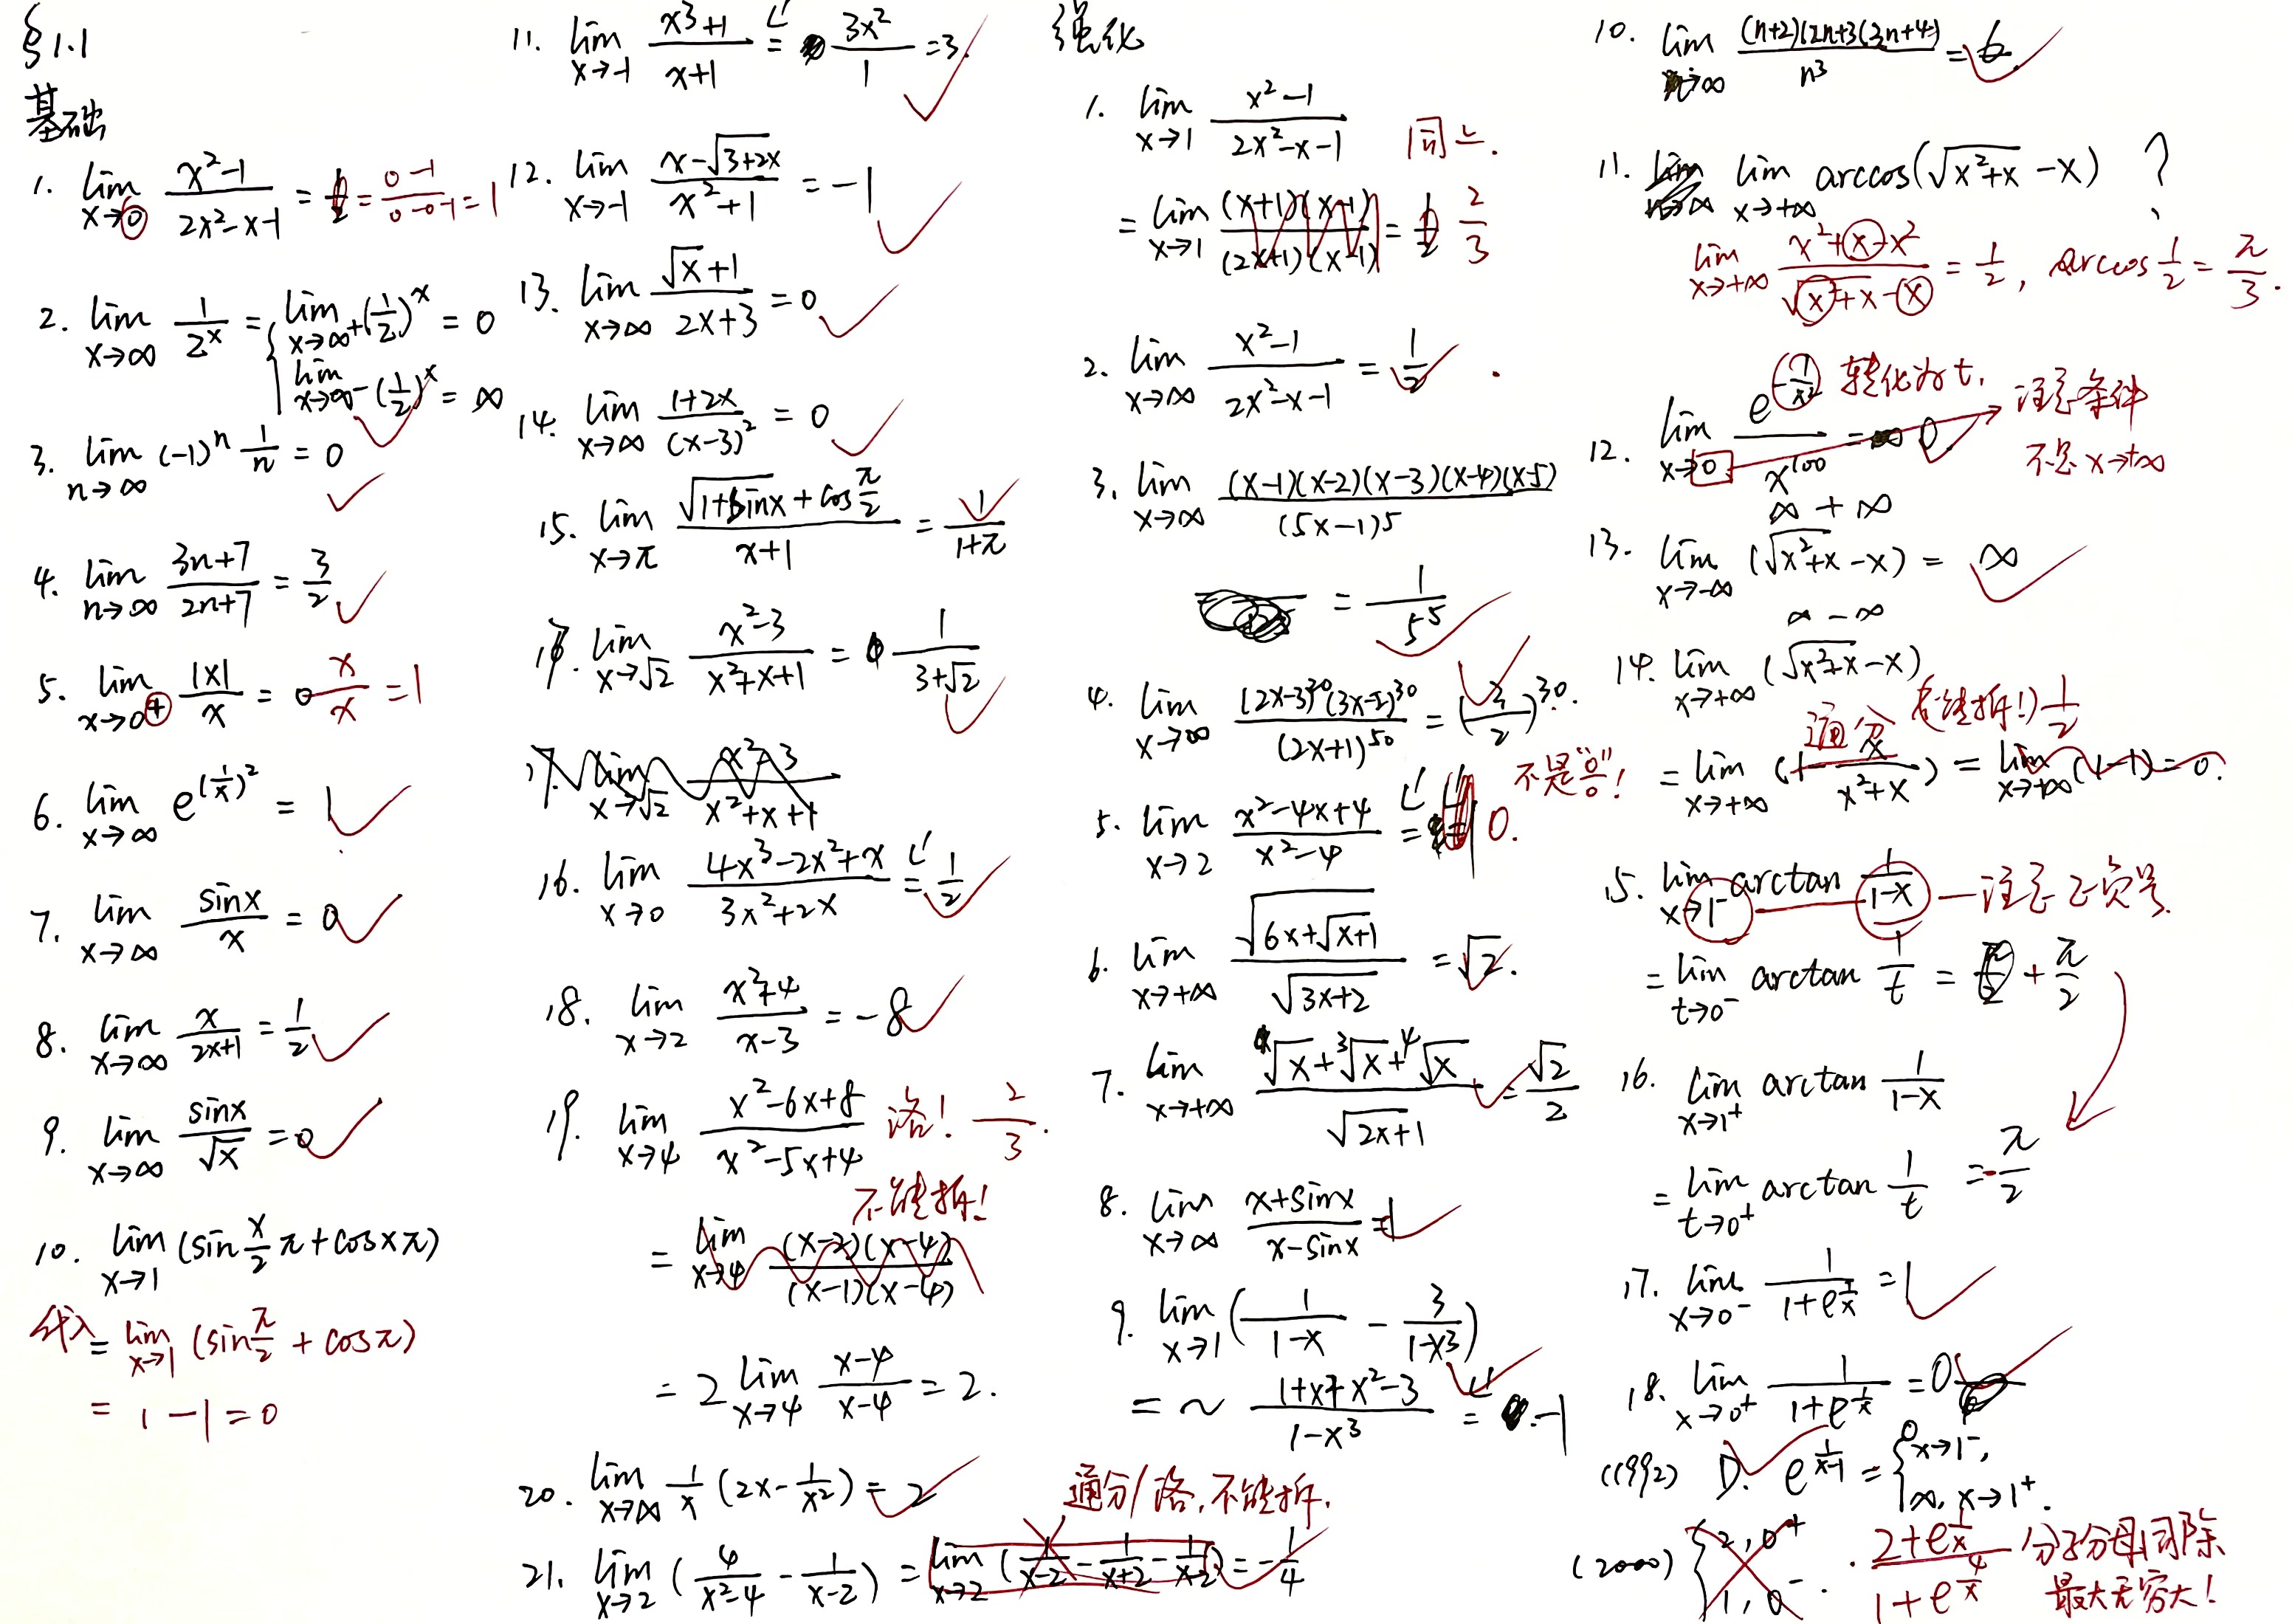 §1.1
基础
1. lim x→0 (x²-1)/(2x²-x-1) = 1/2 = (0-1)/(0-0-1) = 1
2. lim x→∞ 1/2ˣ = { lim x→∞⁺ (1/2)ˣ = 0
lim x→∞⁻ (1/2)ˣ = ∞
3. lim n→∞ (-1)ⁿ 1/n = 0
4. lim n→∞ (3n+7)/(2n+7) = 3/2
5. lim x→0⁺ |x|/x = 0 x/x = 1
6. lim x→∞ e^(1/x)² = 1
7. lim x→∞ sinx/x = 0
8. lim x→∞ x/(2x+1) = 1/2
9. lim x→∞ sinx/√x = 0
10. lim x→1 (sin x/2 π + cosxπ)
代入 = lim x→1 (sin π/2 + cosπ)
= 1-1=0
11. lim x→-1 (x³+1)/(x+1) L' = 3x²/1 = 3.
12. lim x→-1 (x-√(3+2x))/(x²+1) = -1
13. lim x→∞ (√x+1)/(2x+3) = 0
14. lim x→∞ (1+2x)/(x-3)² = 0
15. lim x→π (√(1+sinx)+cos π/2)/(x+1) = 1/(1+π)
17. lim x→√2 (x²-3)/(x²+x+1) = 1/(3+√2)
17. lim x→√2 (x²-3)/(x²+x+1)
16. lim x→0 (4x³-2x²+x)/(3x²+2x) L' = 1/2
18. lim x→2 (x²+4)/(x-3) = -8
19. lim x→4 (x²-6x+8)/(x²-5x+4) 洛! 2/3.
不能拆!
= lim x→4 (x-2)(x-4)/(x-1)(x-4)
= 2 lim x→4 (x-4)/(x-4) = 2.
20. lim x→∞ 1/x (2x-1/x²) = 2
通分/洛,不能拆.
21. lim x→2 (4/(x²-4) - 1/(x-2)) = lim x→2 (1/(x-2) - 1/(x+2) - 1/(x-2)) = -1/4
强化
1. lim x→1 (x²-1)/(2x²-x-1) 同上.
= lim x→1 (x+1)(x-1)/(2x+1)(x-1) = 1/2 2/3
2. lim x→∞ (x²-1)/(2x²-x-1) = 1/2
3. lim x→∞ (x-1)(x-2)(x-3)(x-4)(x-5)/(5x-1)⁵
= 1/5⁵
4. lim x→∞ (2x-3)²⁰(3x-2)³⁰/(2x+1)⁵⁰ = (3/2)³⁰.
不是"0/0"!
5. lim x→2 (x²-4x+4)/(x²-4) L' = 0.
6. lim x→+∞ √(6x+√(x+1))/√(3x+2) = √2.
7. lim x→+∞ (√x+³√x+⁴√x)/√(2x+1) = √2/2
8. lim x→∞ (x+sinx)/(x-sinx) = 1
9. lim x→1 (1/(1-x) - 3/(1-x³))
= ~ (1+x+x²-3)/(1-x³) L' = -1
10. lim n→∞ (n+2)(2n+3(3n+4)/n³ = 6.
11. lim n→∞ lim x→+∞ arccos(√(x²+x) -x) ?
lim x→+∞ (x²+x-x²)/(√(x²+x)-x) = 1/2, arccos 1/2 = π/3.
12. lim x→0 e^(-1/x²)/x¹⁰⁰ = ∞ 0 转化为t. 注意条件
不是x→+∞
∞+∞
13. lim x→-∞ (√(x²+x) -x) = ∞
∞-∞
14. lim x→+∞ (√(x²+x) -x)
通分 (不能拆!) 1/2
= lim x→+∞ (1 - x/(x²+x)) = lim x→+∞ (1-1) = 0.
15. lim x→1⁻ arctan 1/(1-x) —注意正负号.
= lim t→0⁻ arctan 1/t = + π/2
16. lim x→1⁺ arctan 1/(1-x)
= lim t→0⁺ arctan 1/t = -π/2
17. lim x→0⁻ 1/(1+e^(1/x)) = 1
18. lim x→0⁺ 1/(1+e^(1/x)) = 0
(1992) D. e^(1/(x-1)) = { 0 x→1⁻,
∞, x→1⁺.
(2000) { 2, 0⁺
1, 0⁻. (2+e^(1/x))/(1+e^(4/x)) 分子分母同除
最大无穷大!